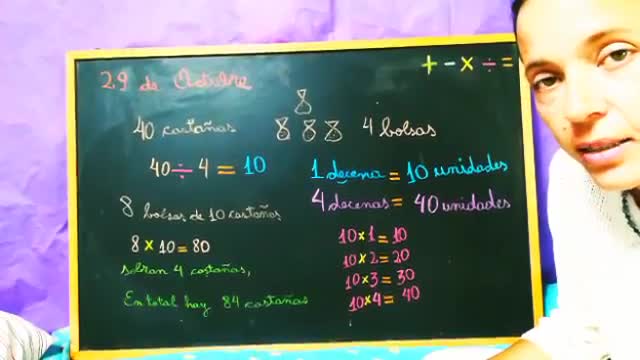 29 de Octubre
+ - × ÷ =
40 castañas
4 bolsas
40 ÷ 4 = 10
8 bolsas de 10 castañas
8 × 10 = 80
sobran 4 castañas,
En total hay 84 castañas
1 decena = 10 unidades
4 decenas = 40 unidades
10 × 1 = 10
10 × 2 = 20
10 × 3 = 30
10 × 4 = 40